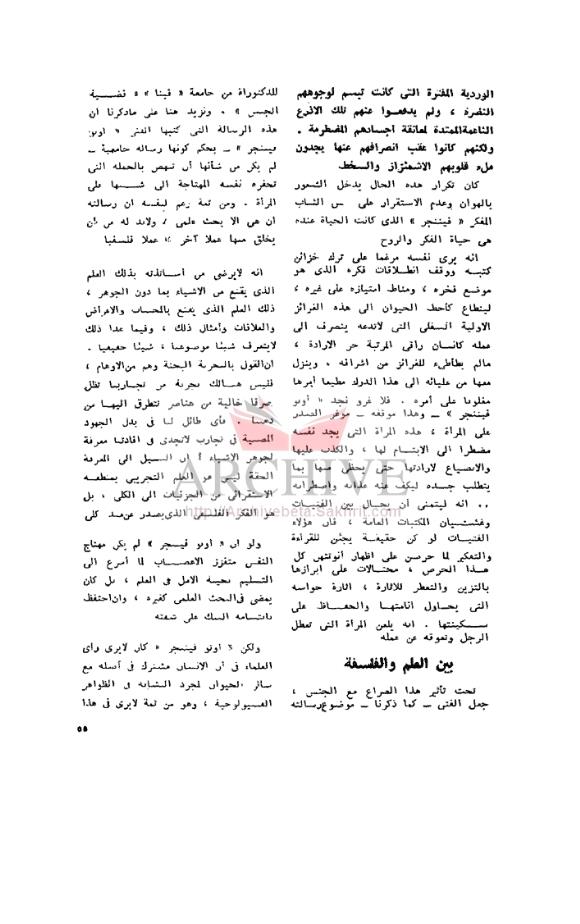 الوردية المفترة التى كانت تبسم لوجوههم
النضرة ، ولم يدفعوا عنهم تلك الاذرع
الناعمةالممتدة لمعانقة اجسادهم المضطرمة .
ولكنهم كانوا عقب انصرافهم عنها يجدون
ملء قلوبهم الاشمئزاز والسخط
كان تكرار هذه الحال يدخل الشعور
بالهوان وعدم الاستقرار على نفس الشاب
المفكر « فيننجر » الذى كانت الحياة عنده
هى حياة الفكر والروح
انه يرى نفسه مرغما على ترك خزائن
كتبه ووقف انطلاقات فكره الذى هو
موضع فخره ، ومناط امتيازه على غيره ،
لينطاع كأحط الحيوان الى هذه الغرائز
الاولية السفلى التى لاتدعه ينصرف الى
عمله كانسان راقى المرتبة حر الارادة ،
مالم يطأطىء للغرائز من اشرافه ، وينزل
معها من عليائه الى هذا الدرك مطيعا أمرها
مغلوبا على أمره . فلا غرو نجد « أوتو
فيننجر » ــ وهذا موقفه ــ موغر الصدر
على المرأة ، هذه المرأة التى يجد نفسه
مضطرا الى الابتسام لها ، والكذب عليها
والانصياع لارادتها حتى يحظى منها بما
يتطلب جسده ليكف عنه عذابه واضطرابه
.. انه ليتمنى أن يحال بين الفتيات
وغشيان المكتبات العامة ، فان هؤلاء
الفتيات لو كن حقيقة يجئن للقراءة
والتفكير لما حرصن على اظهار أنوثتهن كل
هذا الحرص ، محتالات على ابرازها
بالتزين والتعطر للاثارة ، اثارة حواسه
التى يحاول انامتها والحفاظ على
سكينتها . انه يلعن المرأة التى تعطل
الرجل وتعوقه عن عمله
بين العلم والفلسفة
تحت تأثير هذا الصراع مع الجنس ،
جعل الفتى ــ كما ذكرنا ــ موضوع رسالته
للدكتوراة من جامعة « فينا » « قضية
الجنس » . ونزيد هنا على ماذكرنا ان
هذه الرسالة التى كتبها الفتى « اوتو
فيننجر » ــ بحكم كونها رسالة جامعية ــ
لم يكن من شأنها أن تنهض بالحملة التى
تحفزه نفسه المهتاجة الى شنها على
المرأة . ومن ثمة زعم لنفسه ان رسالته
ان هى الا بحث علمى ، ولابد له من أن
يخلق منها عملا آخر عملا فلسفيا
انه لايرضى من أساتذته بذلك العلم
الذى يقنع من الاشياء بما دون الجوهر ،
ذلك العلم الذى يعنى بالحساب والاعراض
والعلاقات وأمثال ذلك ، وفيما عدا ذلك
لايتعرف شيئا موضوعيا ، شيئا حقيقيا .
ان القول بالتجربة البحتة وهم من الاوهام ،
فليس هنالك تجربة من تجاربنا تظل
صرفا خالية من عناصر تتطرق اليها من
ذهننا . فأى طائل لنا فى بذل الجهود
المضنية فى تجارب لاتجدى فى افادتنا معرفة
لجوهر الاشياء ؟ ان السبيل الى المعرفة
الحقة ليس هو العلم التجريبى بمنطقه
الاستقرائى من الجزئيات الى الكلى ، بل
هو الفكر الفلسفى الذى يصدر عن مبدء كلى
ولو ان « اوتو فيننجر » لم يكن مهتاج
النفس متفزز الاعصاب لما أسرع الى
التسليم بخيبة الامل فى العلم ، بل كان
يمضى فى البحث العلمى كغيره ، وان احتفظ
بابتسامة الشك على شفته
ولكن « اوتو فيننجر » كان لايرى رأى
العلماء فى أن الانسان مشترك فى أصله مع
سائر الحيوان لمجرد التشابه فى الظواهر
الفسيولوجية ، وهو من ثمة لايرى فى هذا
٥٥
ARCHIVE
http://Archivebeta.Sakhrit.com